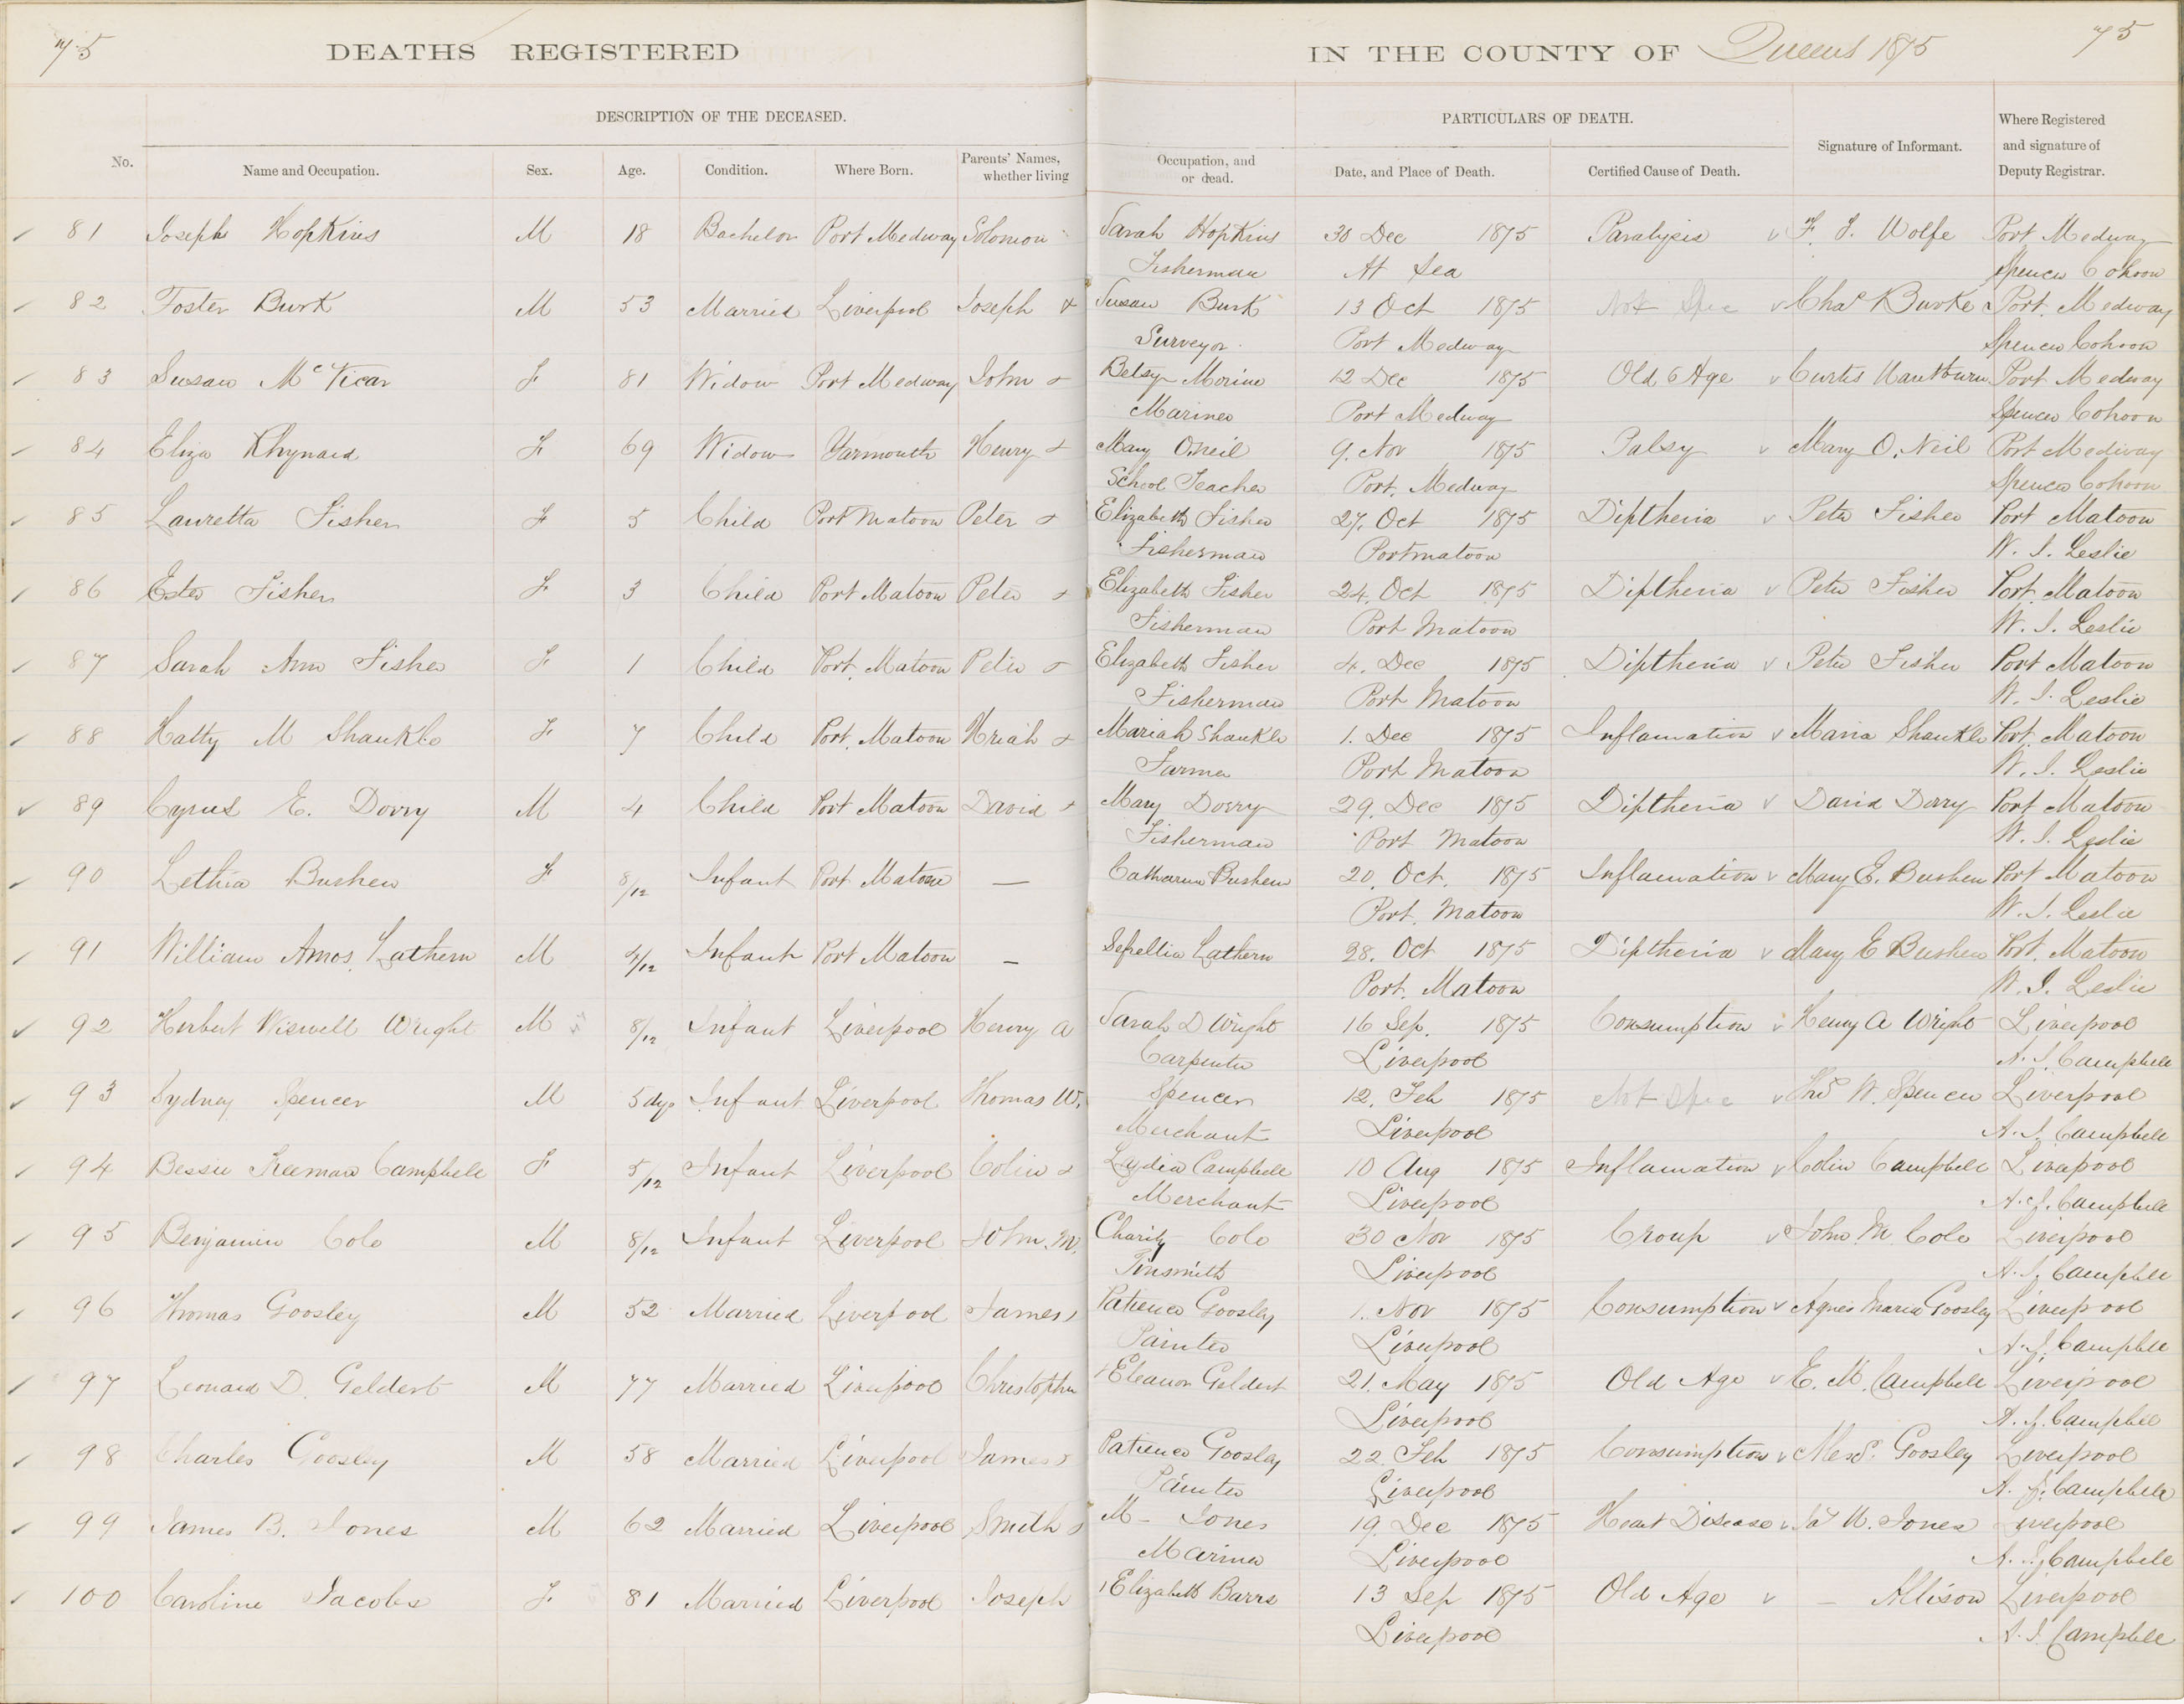 75 DEATHS REGISTERED IN THE COUNTY OF Queens 1875 75
DESCRIPTION OF THE DECEASED. PARTICULARS OF DEATH. Signature of Informant. Where Registered and signature of Deputy Registrar.
No. Name and Occupation. Sex. Age. Condition. Where Born. Parents' Names, whether living Occupation, and or dead. Date, and Place of Death. Certified Cause of Death.
81 Joseph Hopkins M 18 Bachelor Port Medway Solomon Sarah Hopkins 30 Dec 1875 Paralysis v F. J. Wolfe Port Medway
Fisherman At Sea Spencer Cohoon
82 Foster Burk M 53 Married Liverpool Joseph & Susan Burk 13 Oct 1875 Not Spec v Chas Burke Port Medway
Surveyor Port Medway Spencer Cohoon
83 Susan McVicar F 81 Widow Port Medway John & Betsy Morine 12 Dec 1875 Old Age v Curtis Port Medway
Mariner Port Medway Spencer Cohoon
84 Eliza Rhynard F 69 Widow Yarmouth Henry & Mary Oneil 9. Nov 1875 Palsy v Mary O. Neil Port Medway
School Teacher Port. Medway Spencer Cohoon
85 Lauretta Fisher F 5 Child Port Matoon Peter & Elizabeth Fisher 27. Oct 1875 Diptheria v Peter Fisher Port Matoon
Fisherman Portmatoon W. J. Leslie
86 Ester Fisher F 3 Child Port Matoon Peter & Elizabeth Fisher 24. Oct 1875 Diptheria v Peter Fisher Port. Matoon
Fisherman Port Matoon W. J. Leslie
87 Sarah Ann Fisher F 1 Child Port. Matoon Peter & Elizabeth Fisher 4. Dec 1875 Diptheria v Peter Fisher Port Matoon
Fisherman Port Matoon W. J. Leslie
88 Hatty M Shankle F 7 Child Port. Matoon Uriah & Mariah Shankle 1. Dec 1875 Inflamation v Maria Shankle Port. Matoon
Farmer Port Matoon W. J. Leslie
89 Cyrus E. Dorry M 4 Child Port Matoon David & Mary Dorry 29. Dec 1875 Diptheria v David Dorry Port Matoon
Fisherman Port Matoon W. J. Leslie
90 Lethia Bushen F 8/12 Infant Port Matoon — Catharine Bushen 20. Oct. 1875 Inflamation v Mary E. Bushen Port Matoon
Port. Matoon W. J. Leslie
91 William Amos Lathern M 4/12 Infant Port Matoon — Lathern 28. Oct 1875 Diptheria v Mary E Bushen Port. Matoon
Port. Matoon W. J. Leslie
92 Herbert Wiswell Wright M 8/12 Infant Liverpool Henry A Sarah D Wright 16 Sep. 1875 Consumption v Henry A Wright Liverpool
Carpenter Liverpool A. J. Campbell
93 Sydney Spencer M 5 dys Infant Liverpool Thomas W. Spencer 12. Feb 1875 Not Spec v Thos W. Spencer Liverpool
Merchant Liverpool A. J. Campbell
94 Bessie Freeman Campbell F 5/12 Infant Liverpool Colin & Lydia Campbell 10 Aug 1875 Inflamation v Colin Campbell Liverpool
Merchant Liverpool A. J. Campbell
95 Benjamin Cole M 8/12 Infant Liverpool John. M. Charity Cole 30 Nov 1875 Croup v John M. Cole Liverpool
Tinsmith Liverpool A. J. Campbell
96 Thomas Goosley M 52 Married Liverpool James & Patience Goosley 1. Nov 1875 Consumption v Agnes Maria Goosley Liverpool
Painter Liverpool A. J. Campbell
97 Leonard D. Geldert M 77 Married Liverpool Christopher & Eleanor Geldert 21. May 1875 Old Age v E. M. Campbell Liverpool
Liverpool A. J. Campbell
98 Charles Goosley M 58 Married Liverpool James & Patience Goosley 22. Feb 1875 Consumption v Goosley Liverpool
Painter Liverpool A. J. Campbell
99 James B. Jones M 62 Married Liverpool Smith & M— Jones 19. Dec 1875 Heart Disease v Jas W. Jones Liverpool
Mariner Liverpool A. J. Campbell
100 Caroline Jacobs F 81 Married Liverpool Joseph & Elizabeth Barrs 13 Sep 1875 Old Age v — Allison Liverpool
Liverpool A. J. Campbell